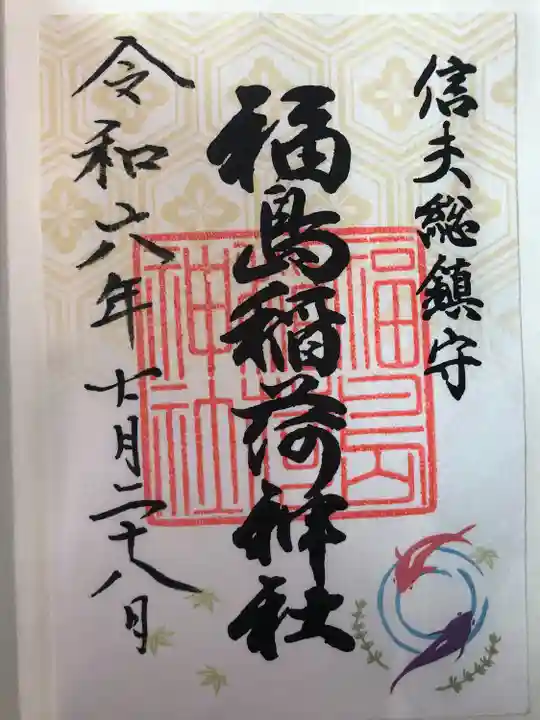 信夫総鎮守
福島稲荷神社
令和六年 月二十八日
福島
稲荷
神社